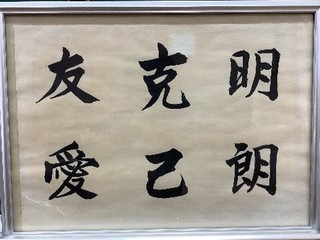 明朗
克己
友愛